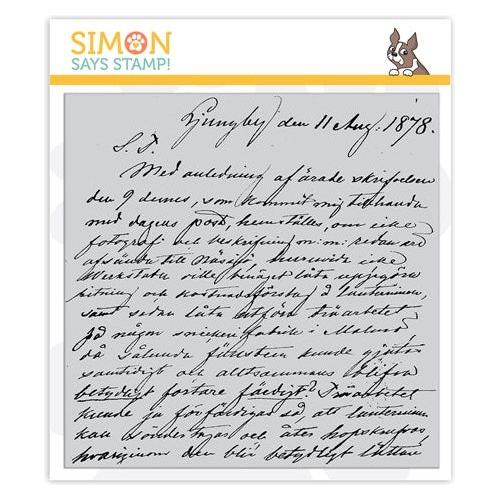 SIMON
SAYS STAMP!
Ljungby den 11 Aug. 1878.
S. T.
Med anledning af ärade skrifvelsen
den 9 dennes, som kommit mig tillhanda
med dagens post, hemställes, om icke
fotografi och beskrifning m: m: redan äro
afsända till Nässjö, huruvida icke
Werkstaden ville benäget låta uppgöra
ritning och kostnadsförslag å lanterninen,
samt sedan låta utföra träarbetet
på någon snickerifabrik i Malmö
då sålunda fönstren kunde gjutas
samtidigt och alltsammans blifva
betydligt fortare färdigt? Träarbetet
kunde ju förfärdigas så, att lanterninen
kan sönder tagas och åter hopskrufvas
hvarigenom den blir betydligt lättare